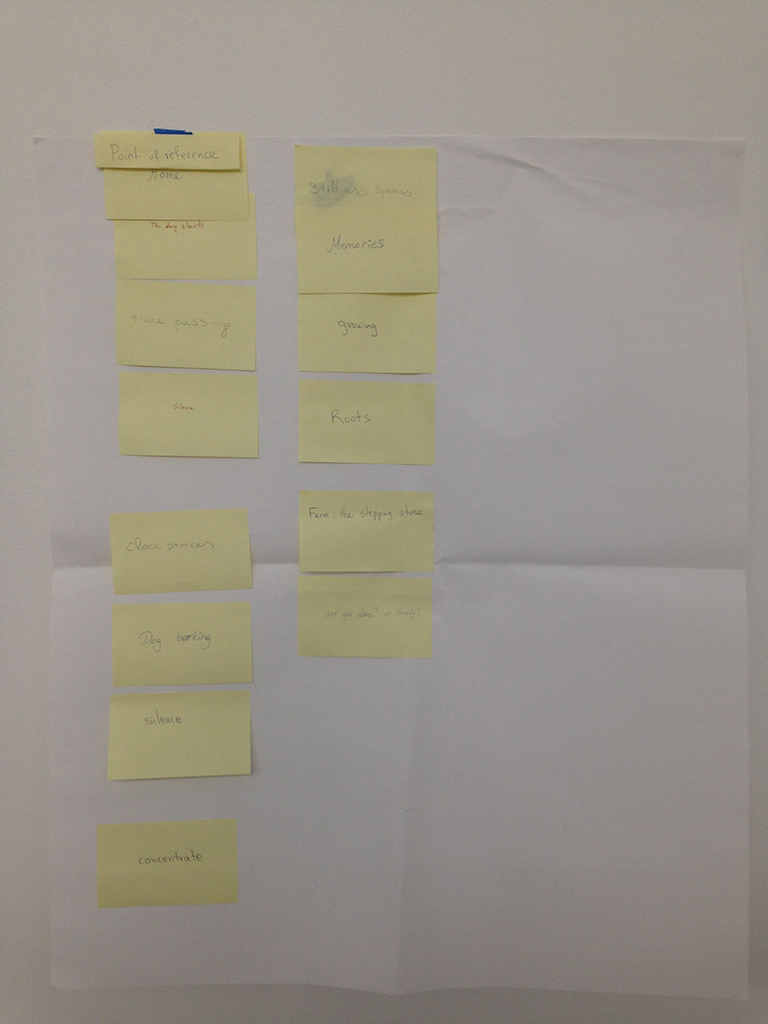 Point of reference
Home
The day starts
time passing
silence
clock strikes
Dog barking
silence
concentrate
Stillness speaks
Memories
growing
Roots
Farm, the stepping stone
are you alone? or lonely?